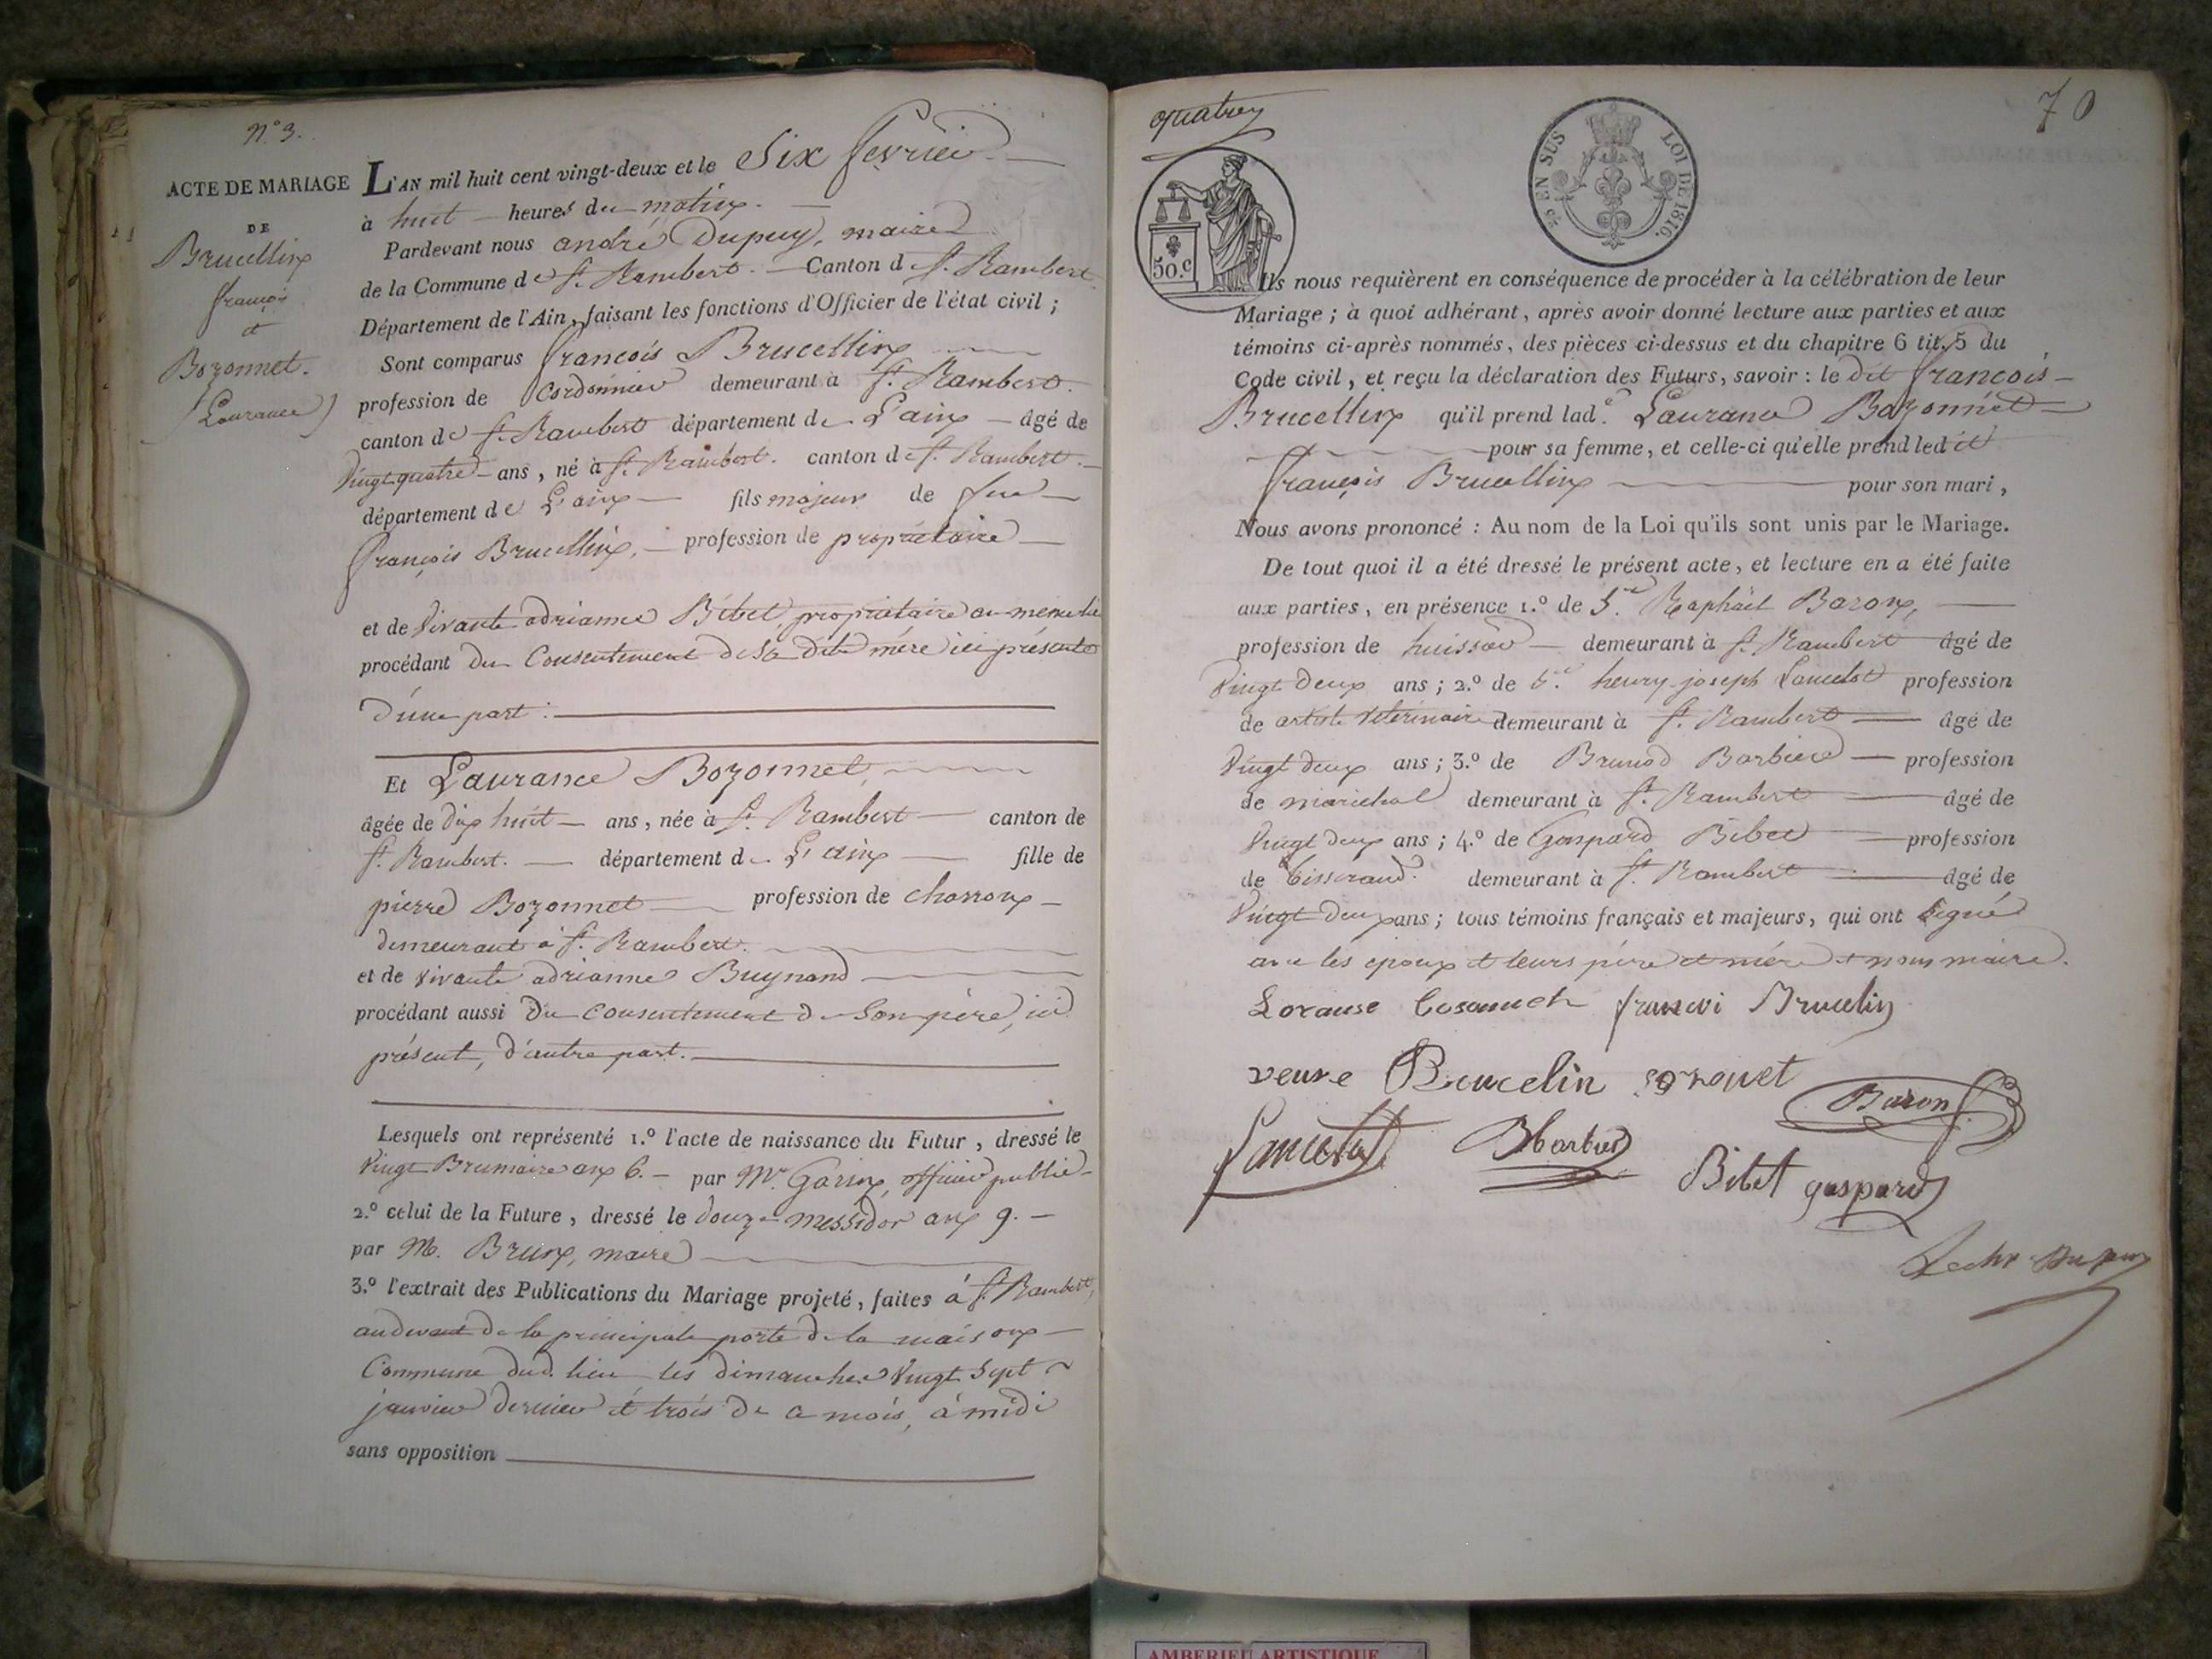 N.° 3.
ACTE DE MARIAGE
DE
Brucellin
françois
et
Bozonnet.
(Laurance)
L'AN mil huit cent vingt-deux et le Six fevrier
à huit heures du matin.
Pardevant nous andré Dupuy, maire
de la Commune de St. Rambert. Canton de St. Rambert
Département de l'Ain, faisant les fonctions d'Officier de l'état civil ;
Sont comparus françois Brucellin
profession de Cordonnier demeurant à St. Rambert.
canton de St. Rambert département de L'ain âgé de
Vingt quatre ans, né à St. Rambert. canton de St. Rambert.
département de L'ain fils majeur de feu
françois Brucellin, profession de propriétaire
et de Vivante adrianne Bibet, propriétaire au même lieu
procédant du Consentement de sa dite mére ici présente
d'une part :
Et Laurance Bozonnet,
âgée de dix huit ans, née à St. Rambert canton de
St. Rambert. département de L'ain fille de
pierre Bozonnet profession de charron
demeurant à St. Rambert.
et de vivante adrianne Buynand
procédant aussi du consentement de Son père, ici
présent, d'autre part.
Lesquels ont représenté 1.° l'acte de naissance du Futur, dressé le
Vingt Brumaire an 6. par Mr. Garin, officier public
2.° celui de la Future, dressé le douze messidor an 9.
par M. Brun, maire
3.° l'extrait des Publications du Mariage projeté, faites à St. Rambert,
au devant de la principale porte de la maison
Commune dud. lieu les dimanches Vingt Sept
janvier dernier et trois de ce mois, à midi
sans opposition
quatre
70
50.c
EN SUS
LOI DE 1816.
Ils nous requièrent en conséquence de procéder à la célébration de leur
Mariage ; à quoi adhérant, après avoir donné lecture aux parties et aux
témoins ci-après nommés, des pièces ci-dessus et du chapitre 6 tit. 5 du
Code civil, et reçu la déclaration des Futurs, savoir : le dit françois
Brucellin qu'il prend lade. Laurance Bozonnet
pour sa femme, et celle-ci qu'elle prend ledit
françois Brucellin pour son mari,
Nous avons prononcé : Au nom de la Loi qu'ils sont unis par le Mariage.
De tout quoi il a été dressé le présent acte, et lecture en a été faite
aux parties, en présence 1.° de Raphaël Baron,
profession de huissier demeurant à St. Rambert âgé de
Vingt deux ans ; 2.° de henry joseph Lancelot profession
de artiste vétérinaire demeurant à St. Rambert âgé de
Vingt deux ans ; 3.° de Brunod Barbier profession
de marichal demeurant à St. Rambert âgé de
Vingt deux ans ; 4.° de Gaspard Bibet profession
de tisserand. demeurant à St. Rambert âgé de
Vingt deux ans ; tous témoins français et majeurs, qui ont signé
avec les epoux et leurs père et mére et nous maire.
Lorause françoi Brucelin
veuve Brucelin
Baron
Lancelot BBarbier
Bibet gaspard
Dupuy
AMBERIEU ARTISTIQUE